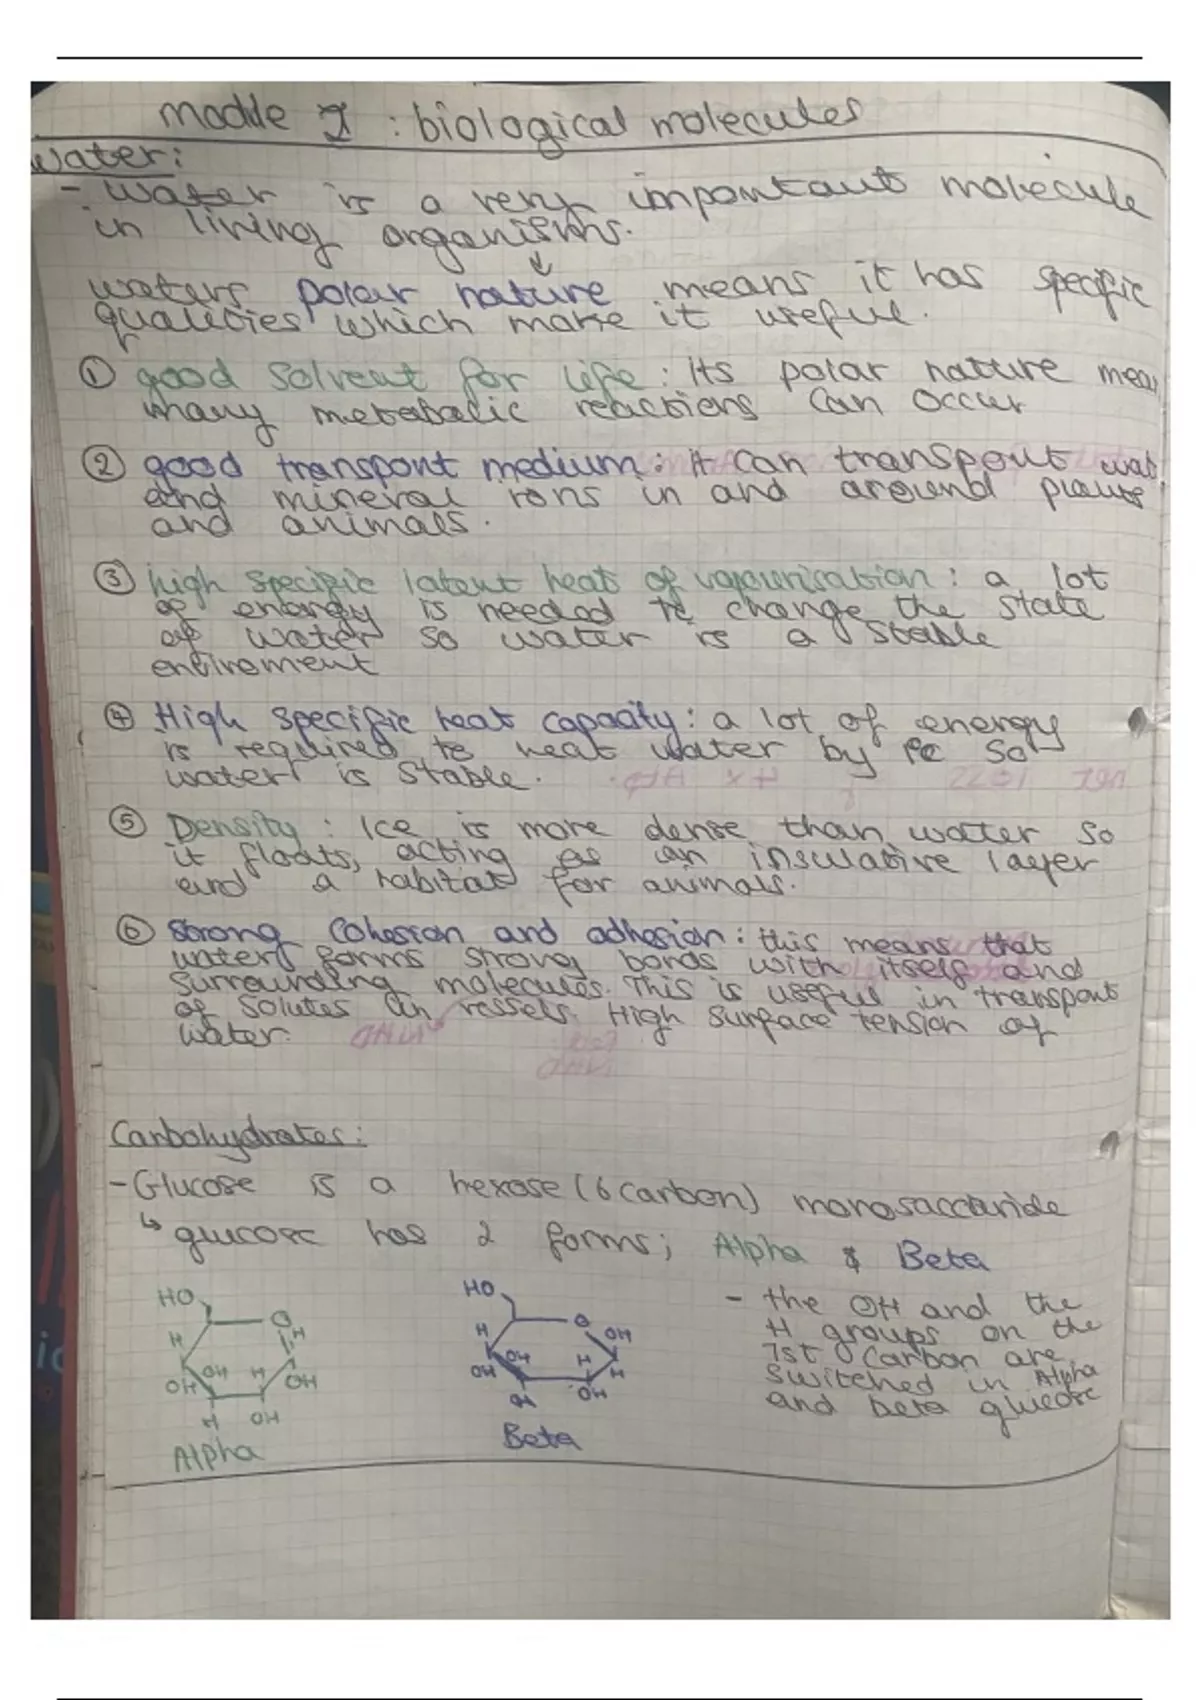 module I : biological molecules
water:
- water is a very important molecule
in living organisms.
↓
waters polar nature means it has specific
qualities which make it useful.
① good solvent for life: its polar nature mean
many metabolic reactions can occur
② good transport medium: it can transport wat
and mineral ions in and around plants
and animals.
③ high specific latent heat of vapourisation: a lot
of energy is needed to change the state
of water so water is a stable
enviroment
④ High specific heat capacity: a lot of energy
is required to heat water by 1°c so
water is stable.
⑤ Density: Ice is more dense than water so
it floats, acting as an insulative layer
and a habitat for animals.
⑥ strong cohesion and adhesion: this means that
water forms strong bonds with itself and
surrounding molecules. This is useful in transport
of solutes in vessels. High surface tension of
water.
Carbohydrates:
- Glucose is a hexose (6 carbon) monosaccaride
↳ glucose has 2 forms; Alpha & Beta
HO HO - the OH and the
O H H O OH H groups on the
H OH H OH OH H 1st carbon are
OH OH H switched in Alpha
H OH OH and beta glucose
Alpha Beta